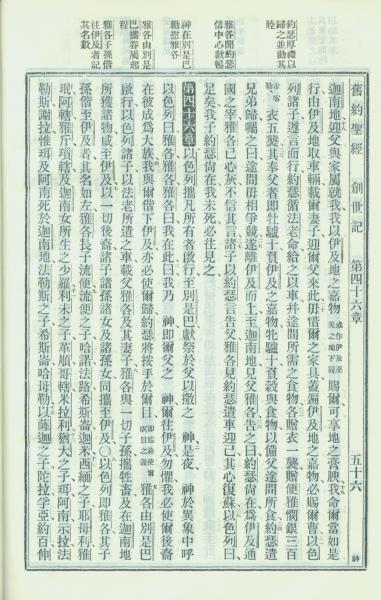 舊約聖經 創世記 第四十六章 五十六 神
約瑟厚禮以
歸之並勸其
睦
雅各聞約瑟
信中心歡暢
神在別是巴
勸慰雅各
雅各由別是
巴攜眷屬起
程
雅各子孫偕
往伊及者記
其名數
迦南地迎父與家屬就我我以伊及地之嘉物或作伊及至美之地下同賜爾可享地之膏腴我命爾當如是
行由伊及地取車輛載爾妻子迎爾父來此毋惜爾之家具蓋遍伊及地之嘉物必賜爾曹以色
列諸子遵言而行約瑟循法老命給之以車幷途間所需之食物各贈衣一襲贈便雅憫銀三百
衣五襲其奉父者即牡驢十負伊及之嘉物牝驢十負穀與食物以備父途間所食約瑟遣
兄弟歸囑之曰途間毋相爭競遂離伊及而上至迦南地見父雅各告之曰約瑟尚在爲伊及通
國之宰雅各心灰不信其言諸子以約瑟言告父雅各見約瑟遣車迎己其心復蘇以色列曰
足矣我子約瑟尚在我未死必往見之
第四十六章以色列攜凡所有者啟行至別是巴獻祭於父以撒之 神是夜 神於異象中呼
以色列曰雅各雅各答曰我在此曰我乃 神即爾父之 神爾往伊及勿懼我必使爾後裔
在彼成爲大族我與爾偕下伊及亦必使爾歸約瑟將按手於爾目 雅各由別是巴
啟行以色列諸子以法老所遣之車載父雅各及其妻子雅各與一切子孫攜牲畜及在迦南地
所獲諸物咸至伊及以一切後裔諸子諸孫諸女及諸孫女同攜至伊及〇以色列即雅各其子
孫偕至伊及者其名如左雅各長子流便流便之子哈諾法路希斯崙迦米西緬之子耶母利雅
珉阿轄雅斤瑣轄及迦南女所生之少羅利未之子革順哥轄米拉利猶大之子珥阿南示拉法
勒斯謝拉惟珥及阿南死於迦南地法勒斯之子希斯崙哈母勒以薩迦之子陀拉孚亞約百伸